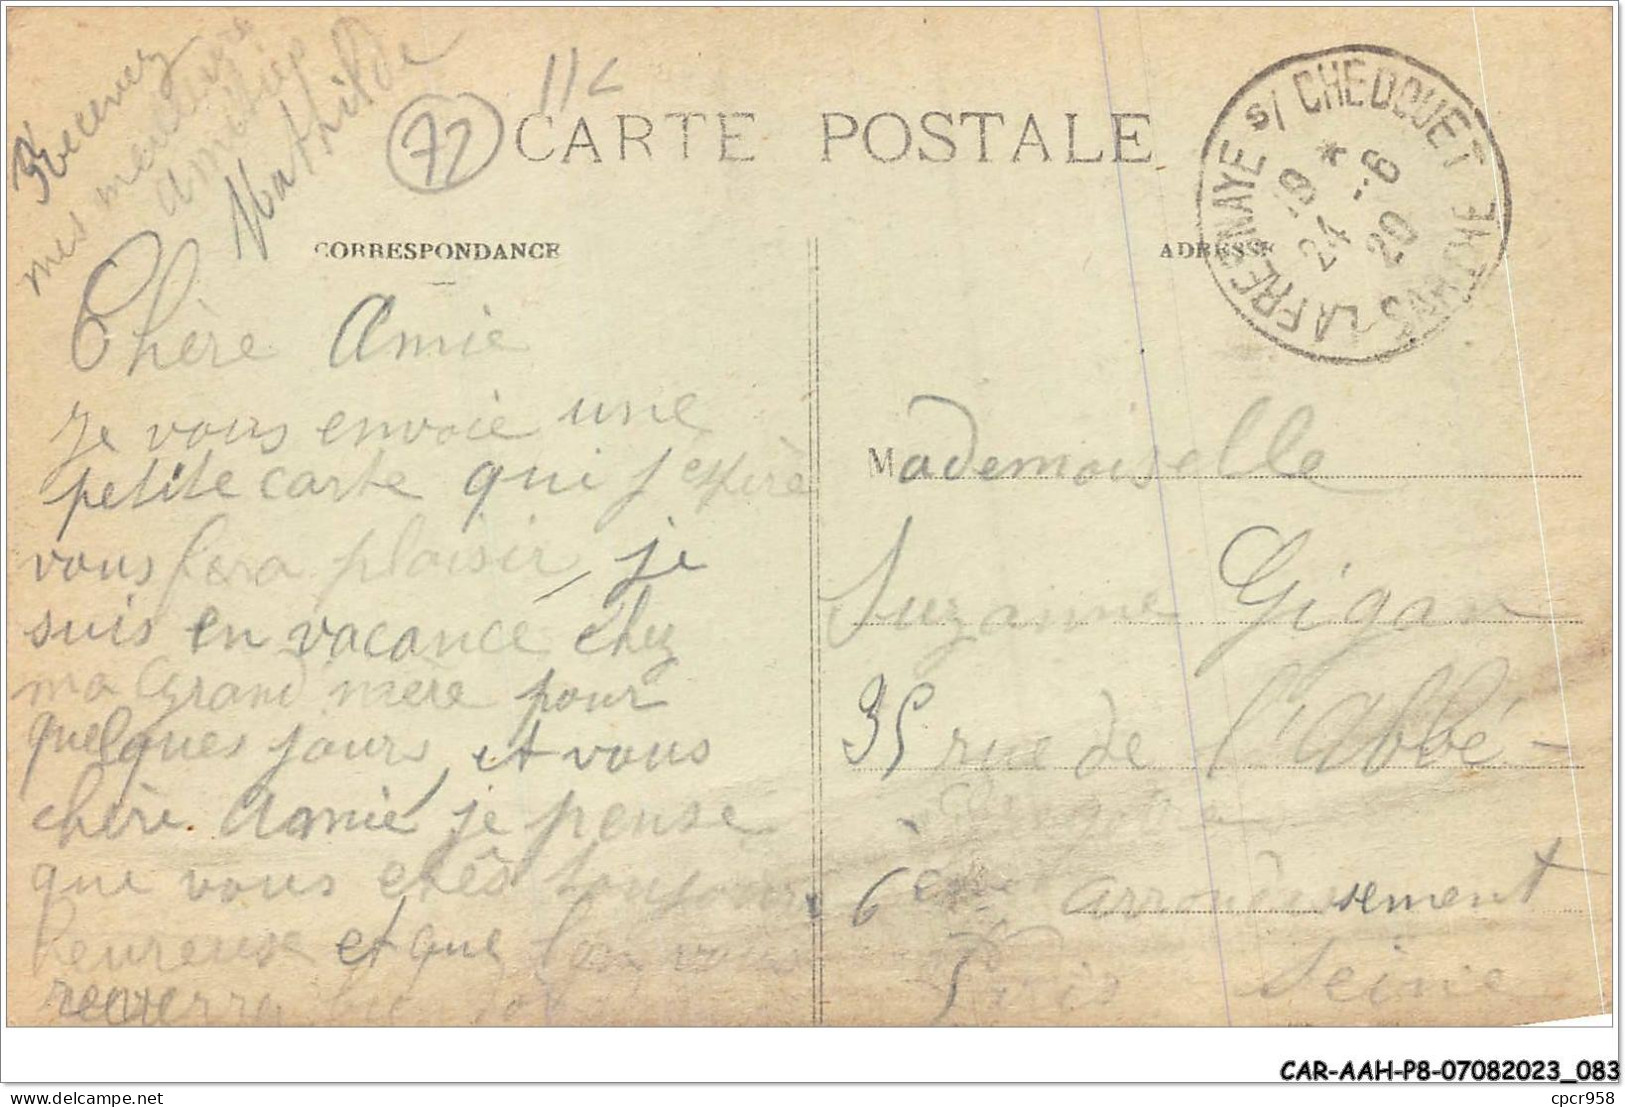 Recevez
mes meilleures
amitiés
Mathilde
72
CARTE POSTALE
LA FRESNAYE S/ CHEDOUET
SARTHE
19 *
24 -6
20
CORRESPONDANCE
ADRESSE
Chère Amie
je vous envoie une
petite carte qui j'espère
vous fera plaisir, je
suis en vacance chez
ma Grand mère pour
quelques jours, et vous
chère Amie, je pense
que vous etês toujours
heureuse et que l'on vous
reverra bien
Mademoiselle
Suzanne Gigan
35 rue de l'Abbé-
6ème arrondissement
Paris Seine
CAR-AAH-P8-07082023_083
cpcr958